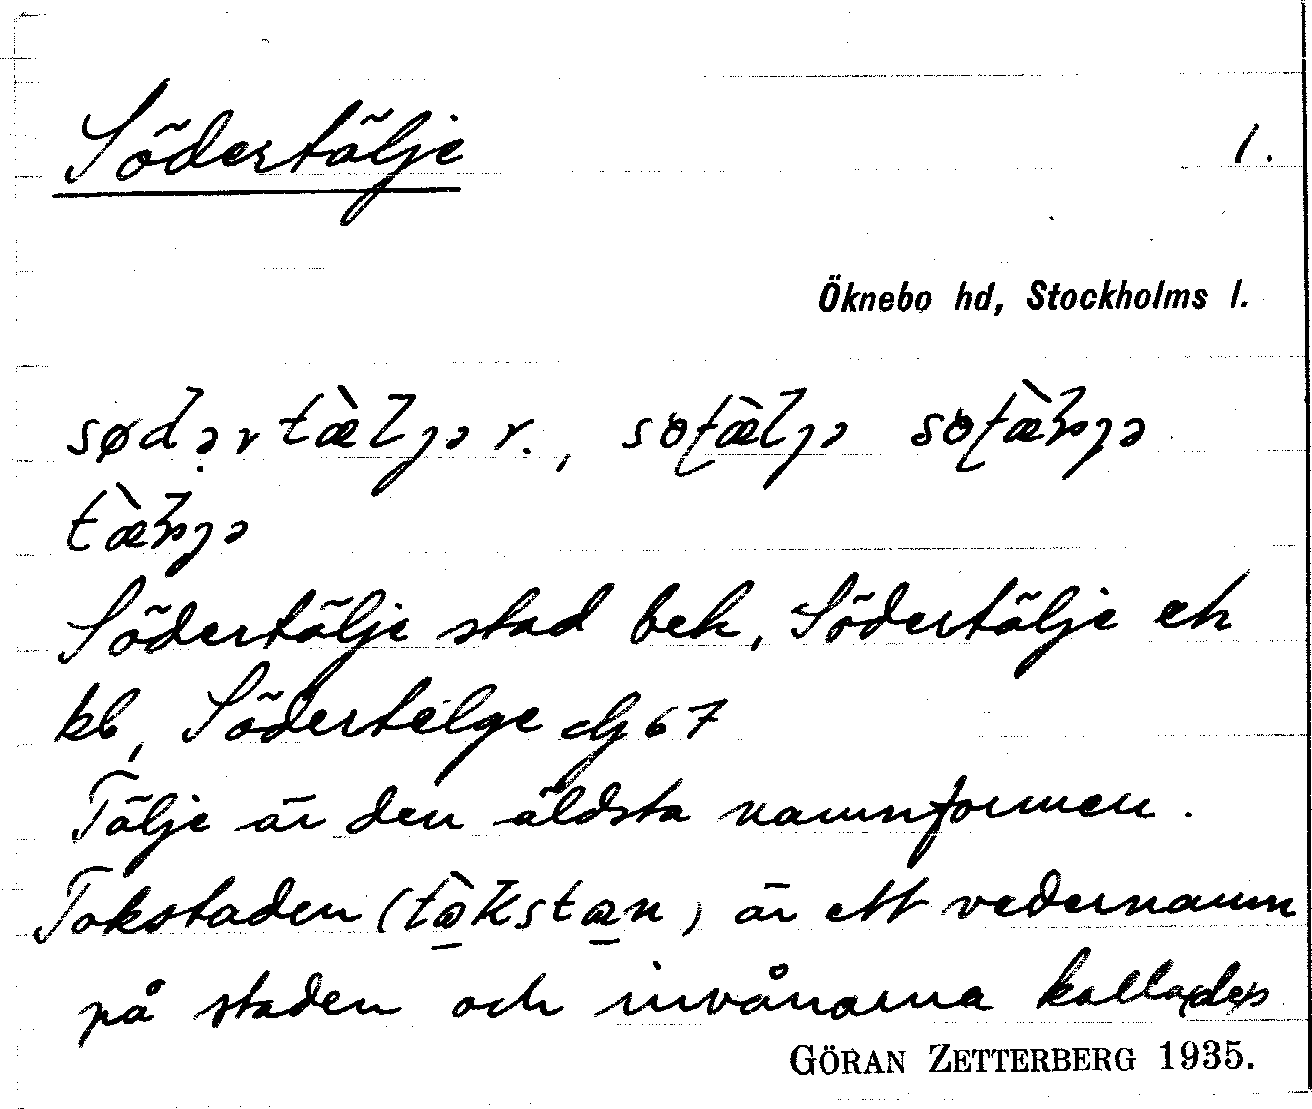 Södertälje 1.
Öknebo hd, Stockholms l.
sødərtæ̀ljə r., sotæ̀ljə
tæ̀
Södertälje stad bek, Södertälje ek
kb, Södertelge dg 67
Tälje är den äldsta namnformen.
Tokstaden (tò̱ksta̱n) är ett vedernamn
på staden och invånarna kallades
GÖRAN ZETTERBERG 1935.